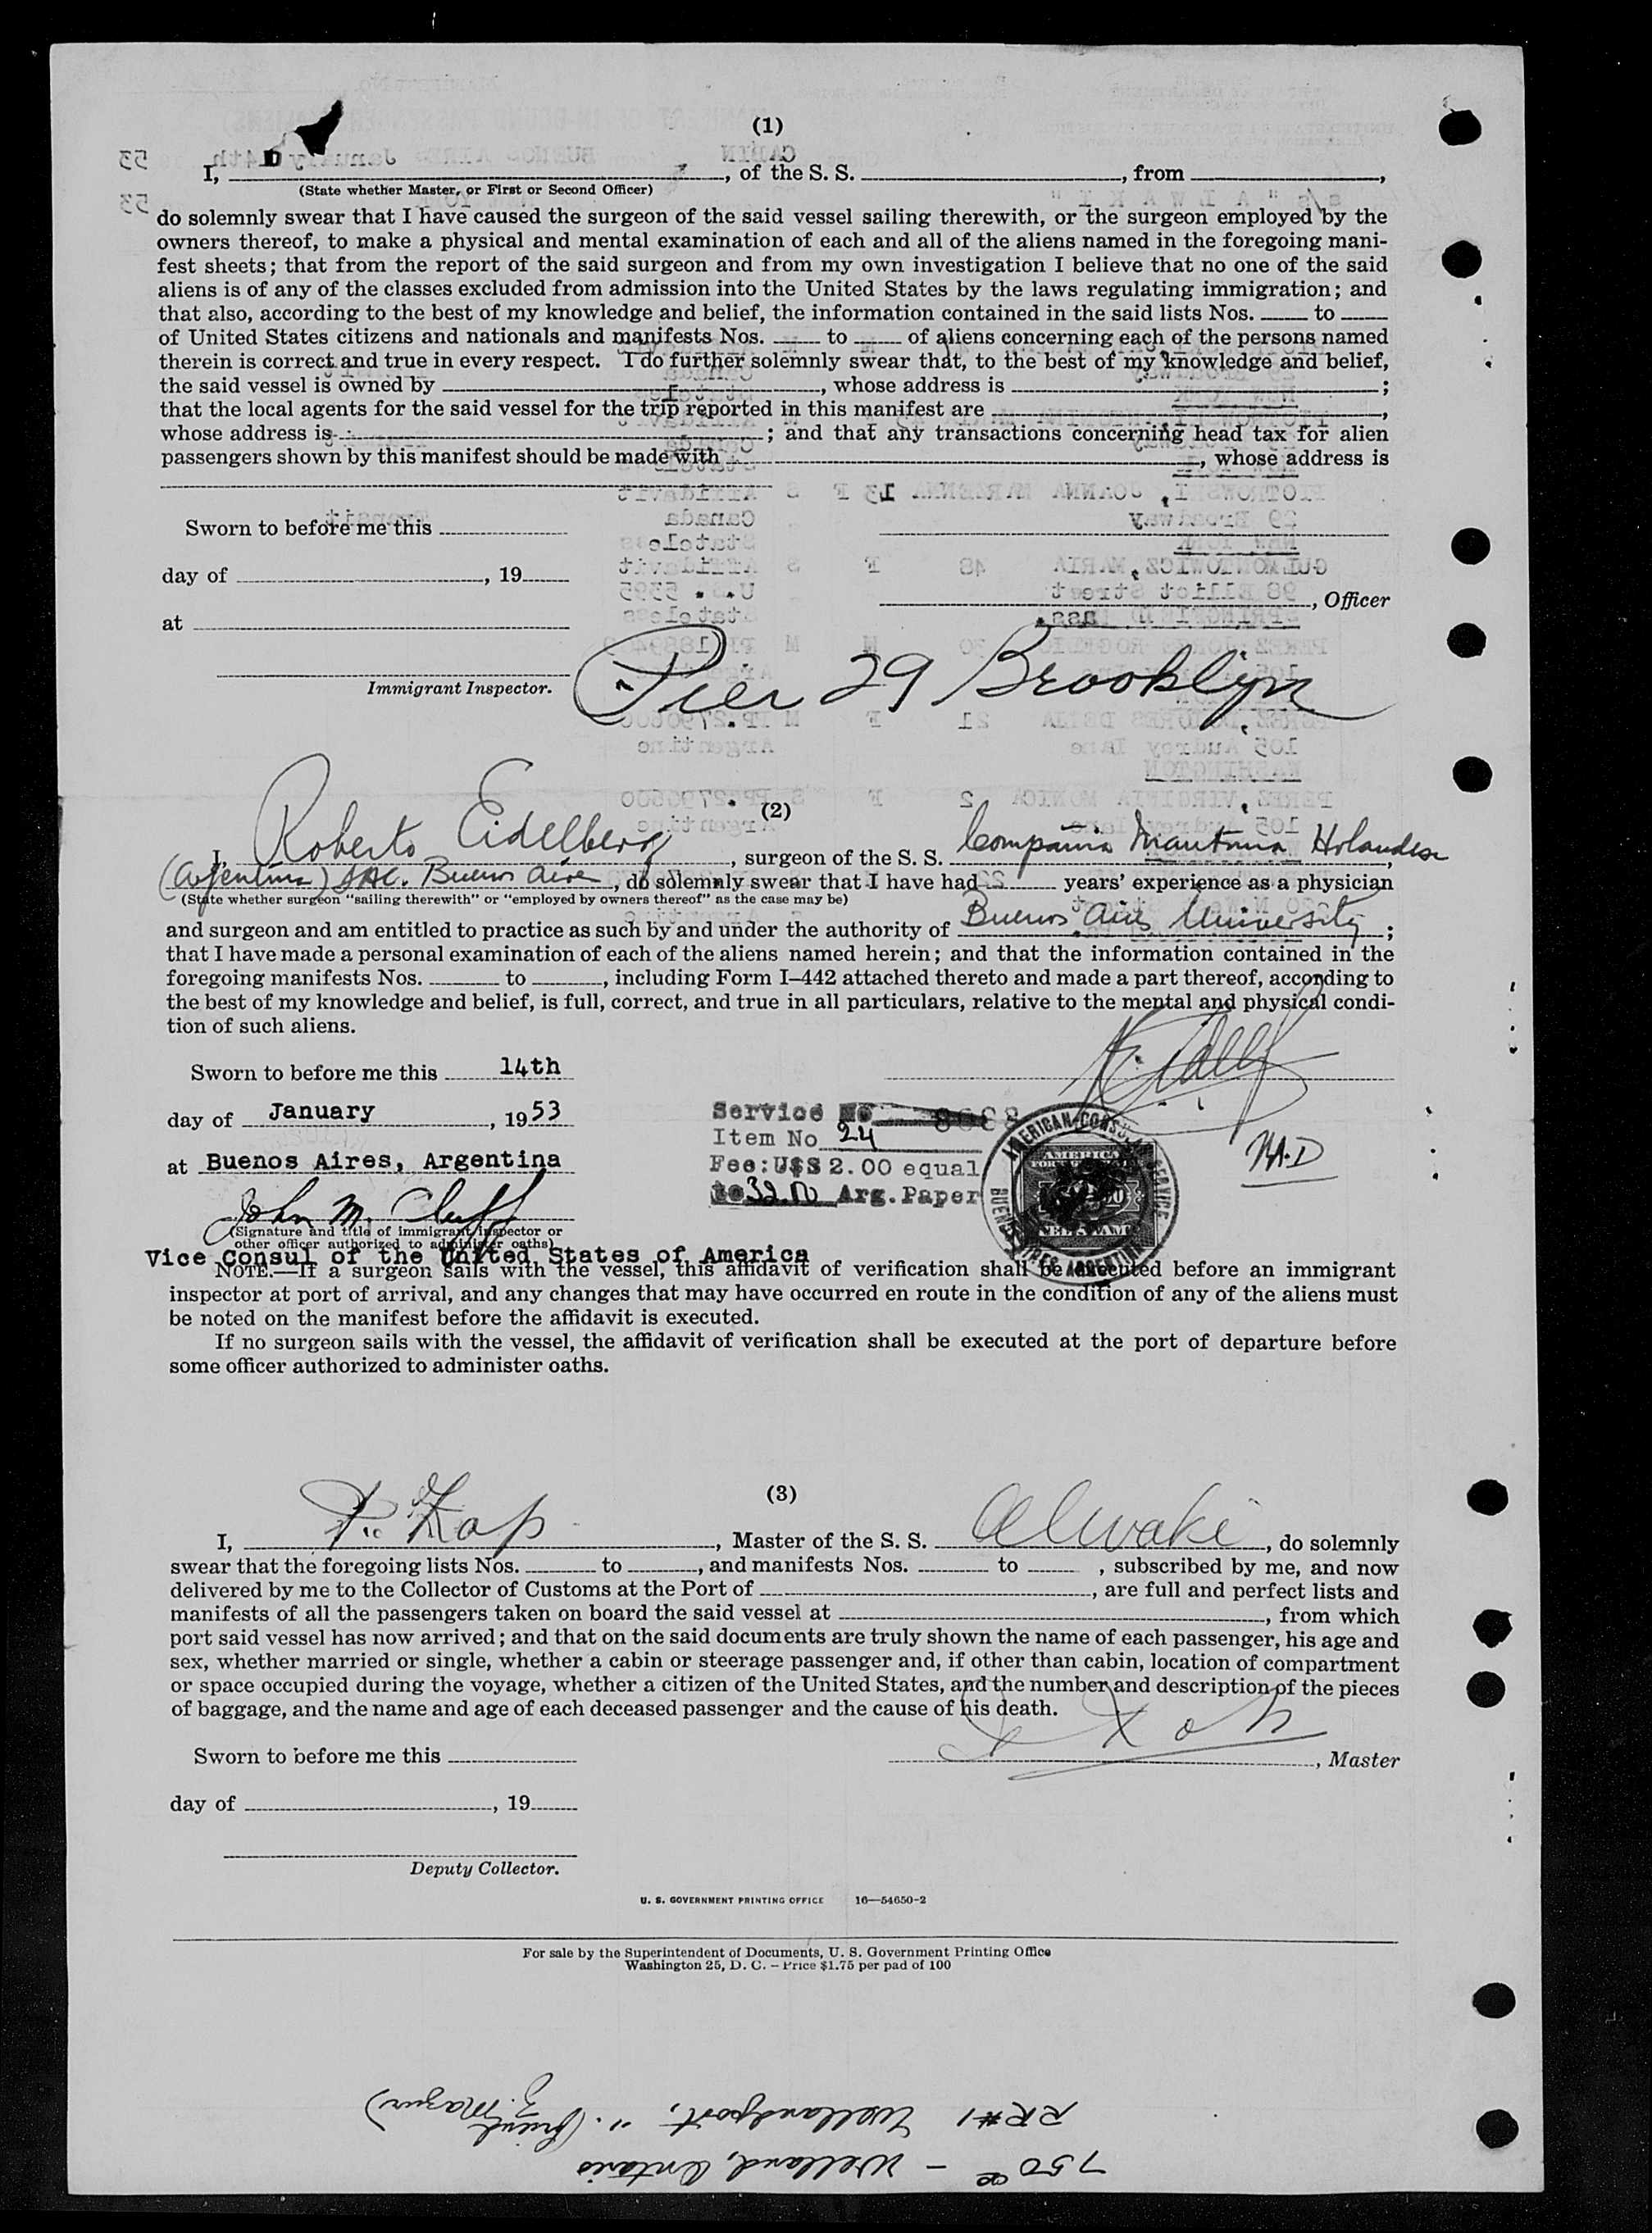 (1)
I, , of the S. S. , from ,
(State whether Master, or First or Second Officer)
do solemnly swear that I have caused the surgeon of the said vessel sailing therewith, or the surgeon employed by the
owners thereof, to make a physical and mental examination of each and all of the aliens named in the foregoing mani-
fest sheets; that from the report of the said surgeon and from my own investigation I believe that no one of the said
aliens is of any of the classes excluded from admission into the United States by the laws regulating immigration; and
that also, according to the best of my knowledge and belief, the information contained in the said lists Nos. to
of United States citizens and nationals and manifests Nos. to of aliens concerning each of the persons named
therein is correct and true in every respect. I do further solemnly swear that, to the best of my knowledge and belief,
the said vessel is owned by , whose address is ;
that the local agents for the said vessel for the trip reported in this manifest are ,
whose address is ; and that any transactions concerning head tax for alien
passengers shown by this manifest should be made with , whose address is
Sworn to before me this
day of , 19
, Officer
at
Immigrant Inspector.
Pier 29 Brooklyn
(2)
I, Roberto Eidelberg, surgeon of the S. S. Compañia Holandesa
(Argentina) Buenos Aires, do solemnly swear that I have had 22 years' experience as a physician
(State whether surgeon "sailing therewith" or "employed by owners thereof" as the case may be)
and surgeon and am entitled to practice as such by and under the authority of Buenos Aires University;
that I have made a personal examination of each of the aliens named herein; and that the information contained in the
foregoing manifests Nos. to , including Form I-442 attached thereto and made a part thereof, according to
the best of my knowledge and belief, is full, correct, and true in all particulars, relative to the mental and physical condi-
tion of such aliens.
Sworn to before me this 14th
day of January, 1953
at Buenos Aires, Argentina
Service No
Item No 24
Fee: U$S 2.00 equal
to 32.00 Arg. Paper
AMERICAN CONSULAR SERVICE
BUENOS AIRES ARGENTINA
M.D
John M.
(Signature and title of immigrant inspector or
other officer authorized to administer oaths)
Vice Consul of the United States of America
NOTE.—If a surgeon sails with the vessel, this affidavit of verification shall be executed before an immigrant
inspector at port of arrival, and any changes that may have occurred en route in the condition of any of the aliens must
be noted on the manifest before the affidavit is executed.
If no surgeon sails with the vessel, the affidavit of verification shall be executed at the port of departure before
some officer authorized to administer oaths.
(3)
I, P. Kap, Master of the S. S. Alwaki, do solemnly
swear that the foregoing lists Nos. to , and manifests Nos. to , subscribed by me, and now
delivered by me to the Collector of Customs at the Port of , are full and perfect lists and
manifests of all the passengers taken on board the said vessel at , from which
port said vessel has now arrived; and that on the said documents are truly shown the name of each passenger, his age and
sex, whether married or single, whether a cabin or steerage passenger and, if other than cabin, location of compartment
or space occupied during the voyage, whether a citizen of the United States, and the number and description of the pieces
of baggage, and the name and age of each deceased passenger and the cause of his death.
Sworn to before me this
, Master
day of , 19
Deputy Collector.
U. S. GOVERNMENT PRINTING OFFICE 16—54650-2
For sale by the Superintendent of Documents, U. S. Government Printing Office
Washington 25, D. C. - Price $1.75 per pad of 100
750 00 - Welland, Ontario
RR#1 Wellandport, " (friend
Z. Mazur)